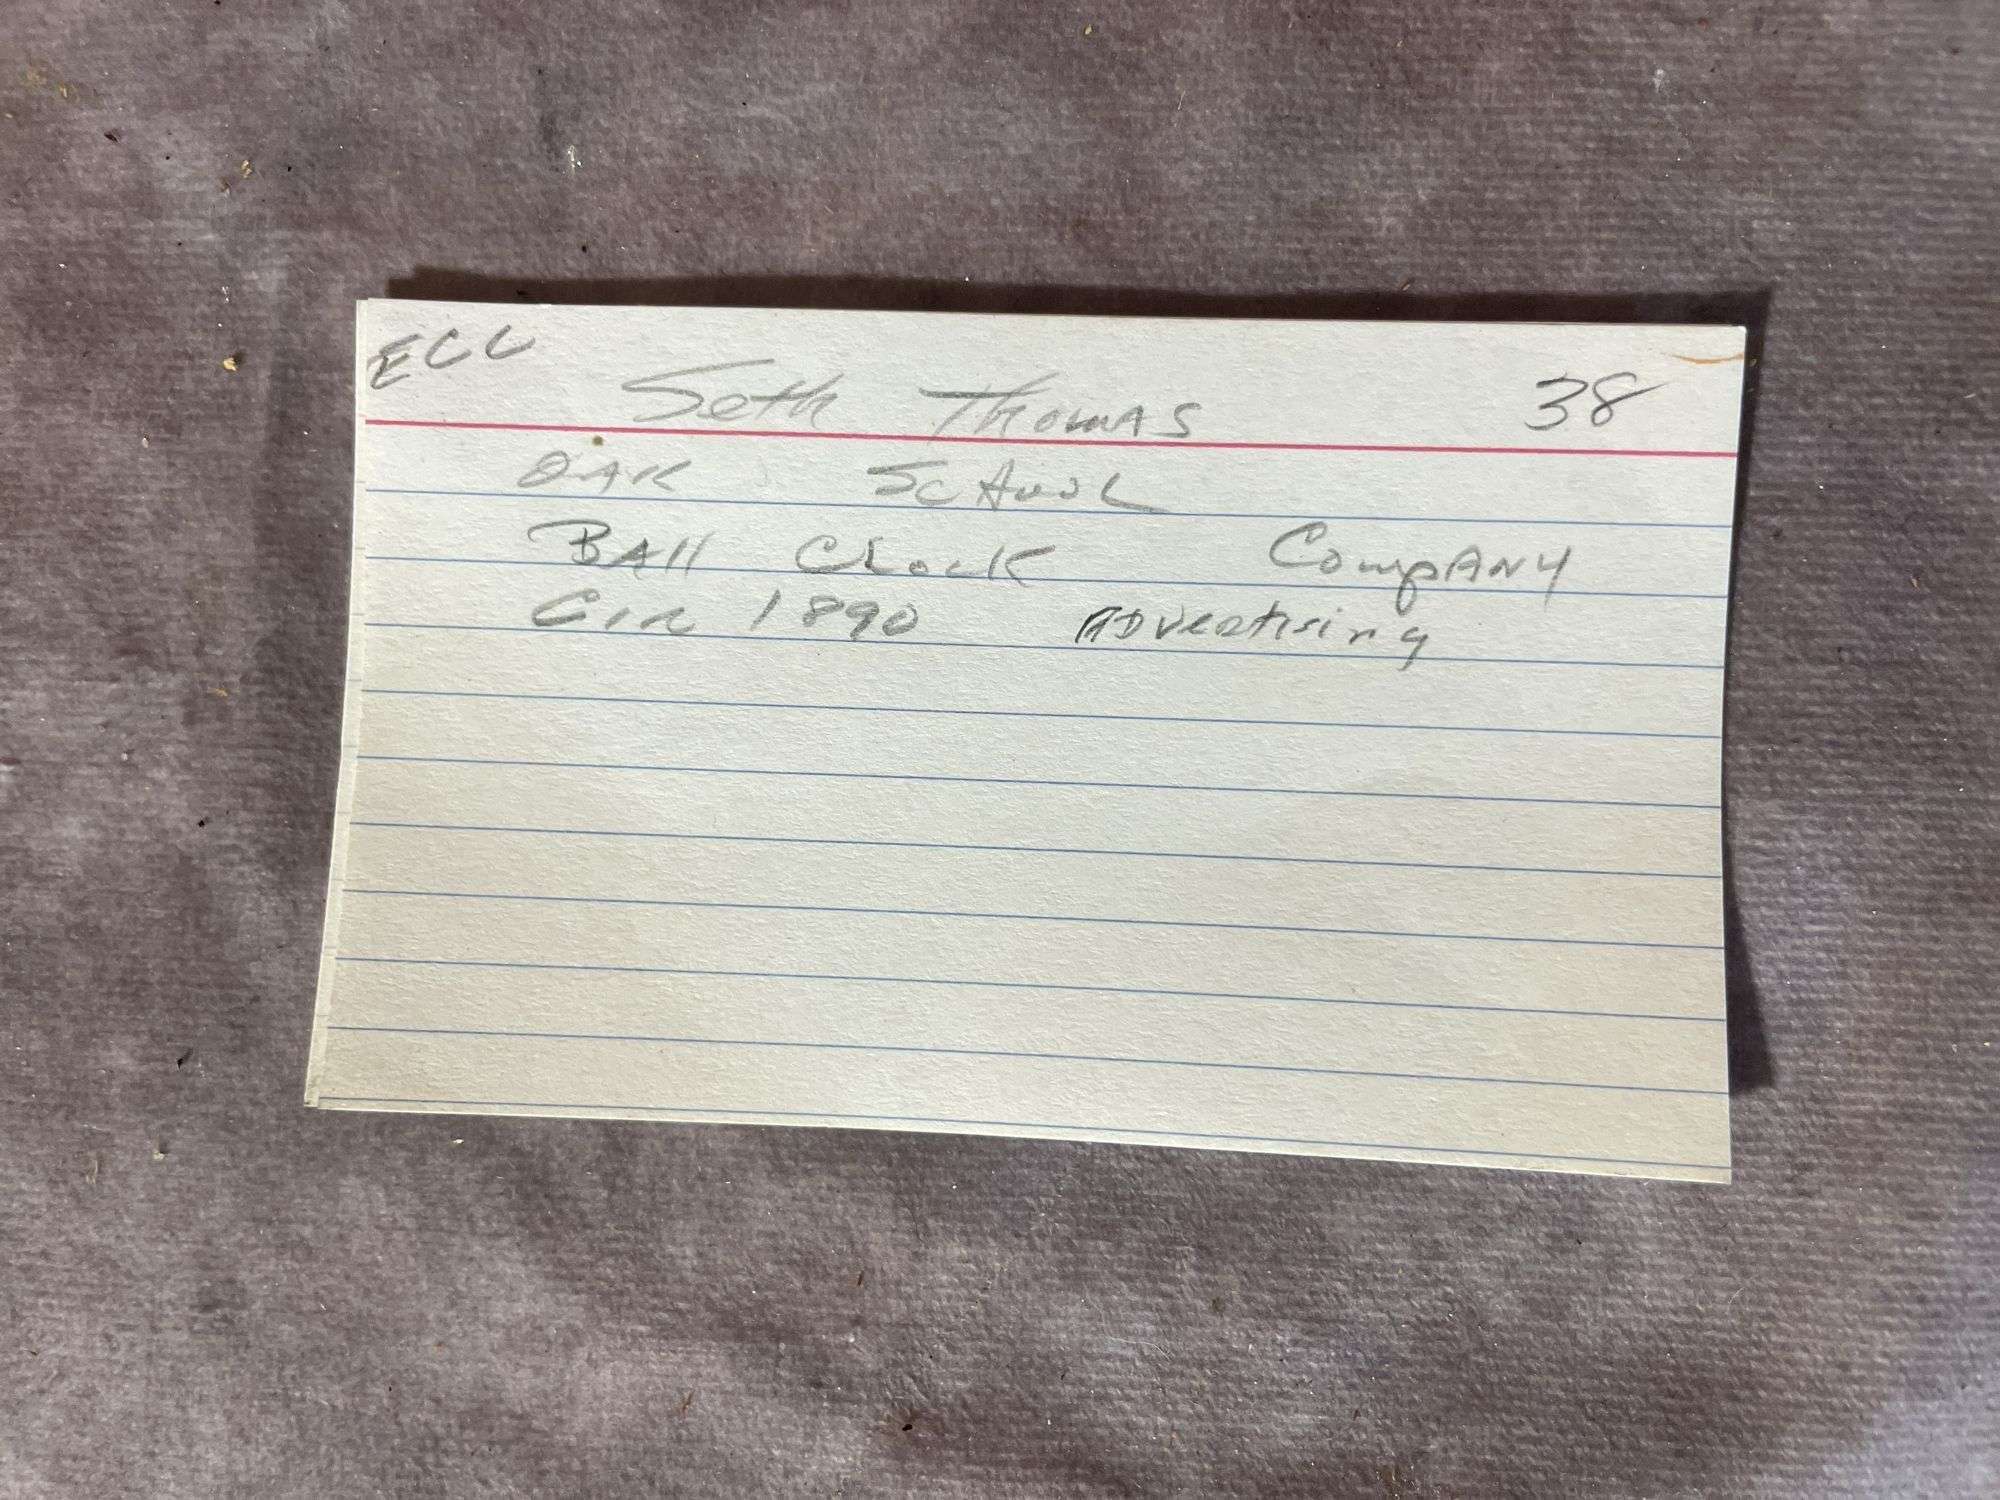 ECC
Seth Thomas 38
OAK School
BAll Clock CompANY
Cir 1890 ADvertising